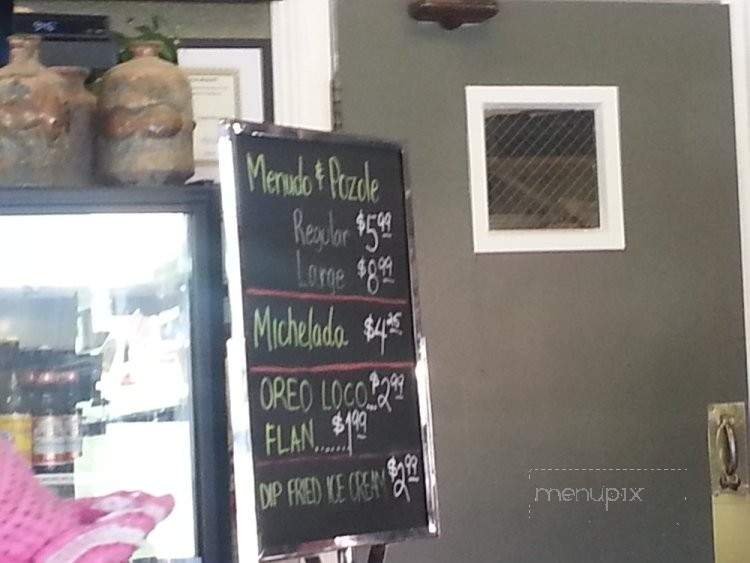 Menudo & Pozole
Regular $5.99
Large $8.99
Michelada $4.25
OREO LOCO...$2.99
FLAN......$1.99
DIP FRIED ICE CREAM $2.99
menupix